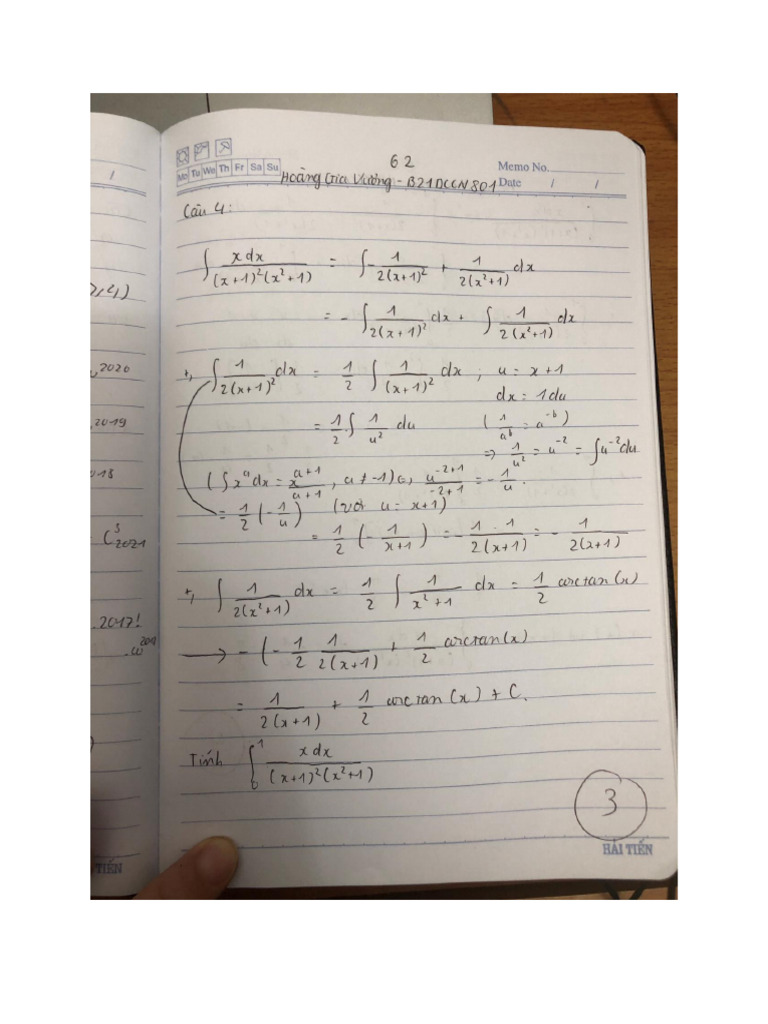 62
Mo Tu We Th Fr Sa Su
Memo No.
Hoàng Gia Vương - B21DCCN801
Date / /
Câu 4:
∫ x dx / (x+1)²(x²+1) = ∫ - 1 / 2(x+1)² + 1 / 2(x²+1) dx
= - ∫ 1 / 2(x+1)² dx + ∫ 1 / 2(x²+1) dx
+, ∫ 1 / 2(x+1)² dx = 1/2 ∫ 1 / (x+1)² dx ; u = x+1
dx = 1du
= 1/2 . ∫ 1/u² du ( 1/a^b = a^-b )
⇒ 1/u² = u^-2 = ∫ u^-2 du
( ∫ x^a dx = x^(a+1) / a+1 , a ≠ -1) u^(-2+1) / -2+1 = - 1/u .
= 1/2 (- 1/u) (với u = x+1)
= 1/2 (- 1 / x+1) = - 1 . 1 / 2(x+1) = - 1 / 2(x+1)
+, ∫ 1 / 2(x²+1) dx = 1/2 ∫ 1 / x²+1 dx = 1/2 arctan(x)
⟶ - (- 1/2 1 / 2(x+1) + 1/2 arctan(x)
= 1 / 2(x+1) + 1/2 arctan(x) + C.
Tính ∫₀¹ x dx / (x+1)²(x²+1)
3
HẢI TIẾN
/
2020
2019
= C³₂₀₂₁
.2017!
TIẾN